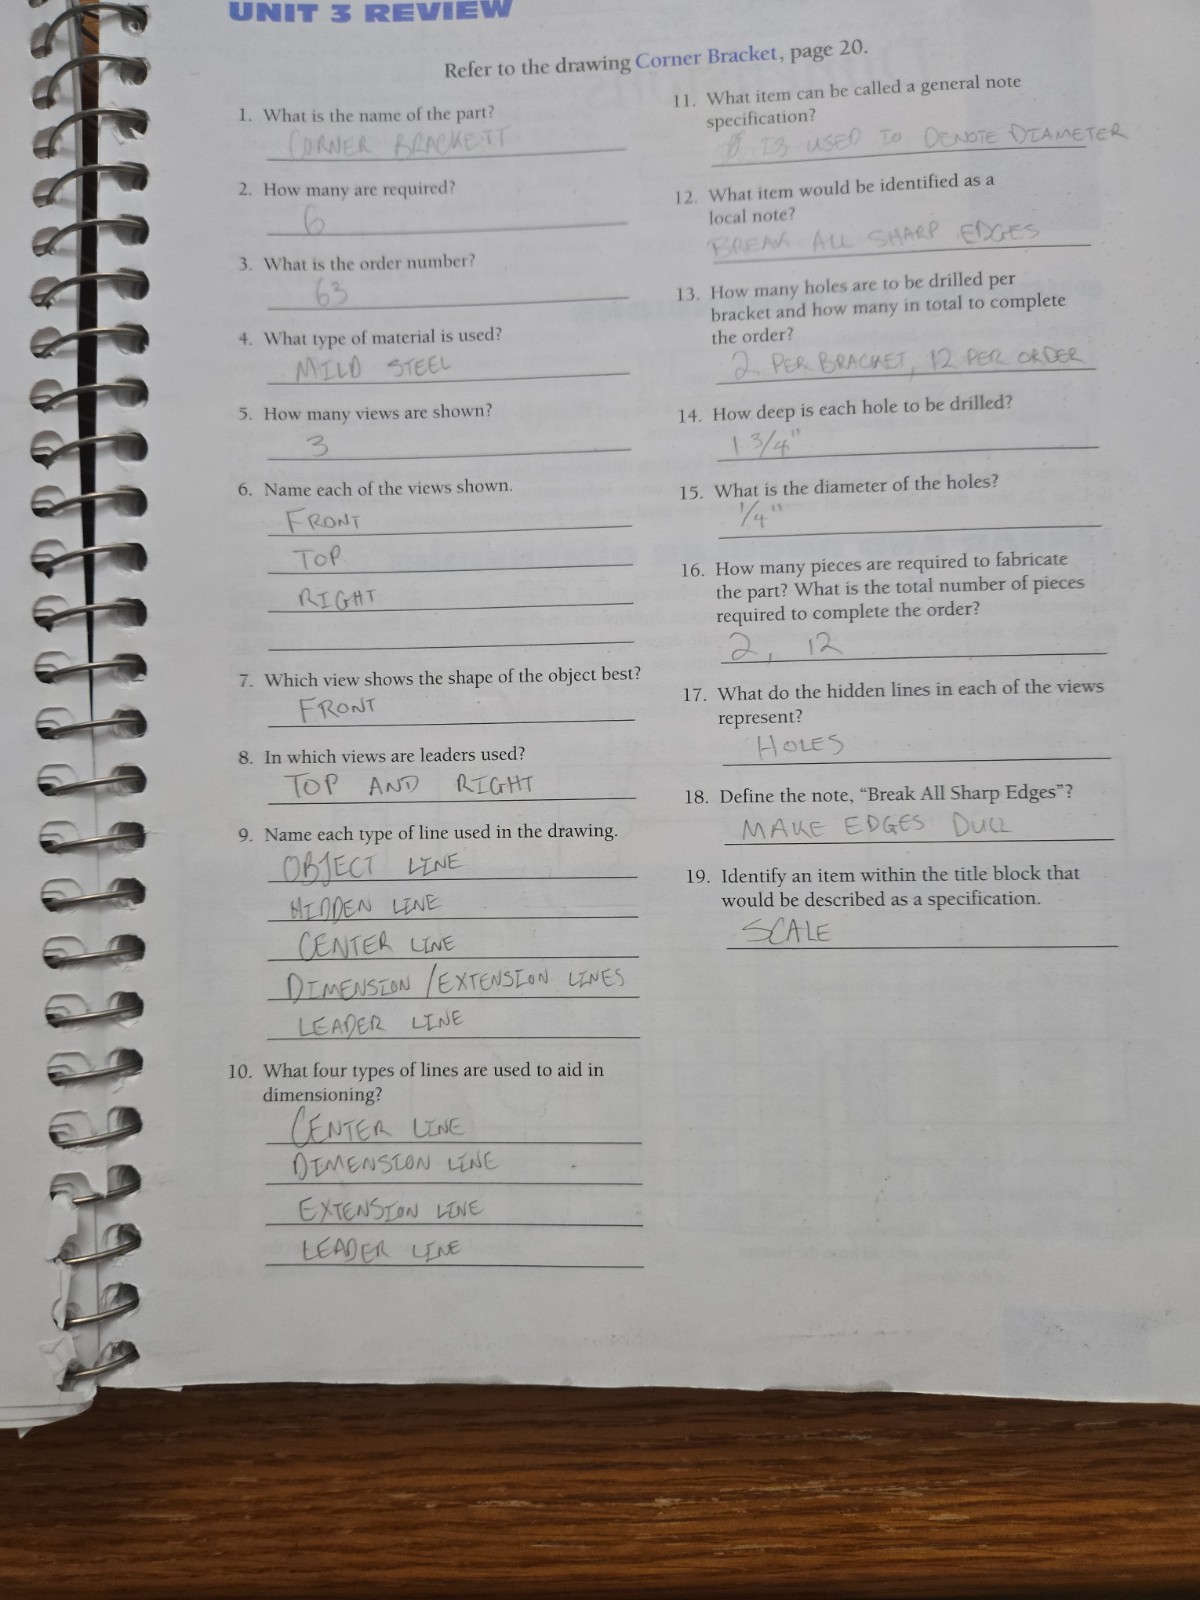 UNIT 3 REVIEW
Refer to the drawing Corner Bracket, page 20.
1. What is the name of the part?
CORNER BRACKETT
2. How many are required?
6
3. What is the order number?
63
4. What type of material is used?
MILD STEEL
5. How many views are shown?
3
6. Name each of the views shown.
FRONT
TOP
RIGHT
7. Which view shows the shape of the object best?
FRONT
8. In which views are leaders used?
TOP AND RIGHT
9. Name each type of line used in the drawing.
OBJECT LINE
HIDDEN LINE
CENTER LINE
DIMENSION / EXTENSION LINES
LEADER LINE
10. What four types of lines are used to aid in
dimensioning?
CENTER LINE
DIMENSION LINE
EXTENSION LINE
LEADER LINE
11. What item can be called a general note
specification?
Ø IS USED TO DENOTE DIAMETER
12. What item would be identified as a
local note?
BREAK ALL SHARP EDGES
13. How many holes are to be drilled per
bracket and how many in total to complete
the order?
2 PER BRACKET, 12 PER ORDER
14. How deep is each hole to be drilled?
1 3/4"
15. What is the diameter of the holes?
1/4"
16. How many pieces are required to fabricate
the part? What is the total number of pieces
required to complete the order?
2, 12
17. What do the hidden lines in each of the views
represent?
HOLES
18. Define the note, “Break All Sharp Edges”?
MAKE EDGES DULL
19. Identify an item within the title block that
would be described as a specification.
SCALE